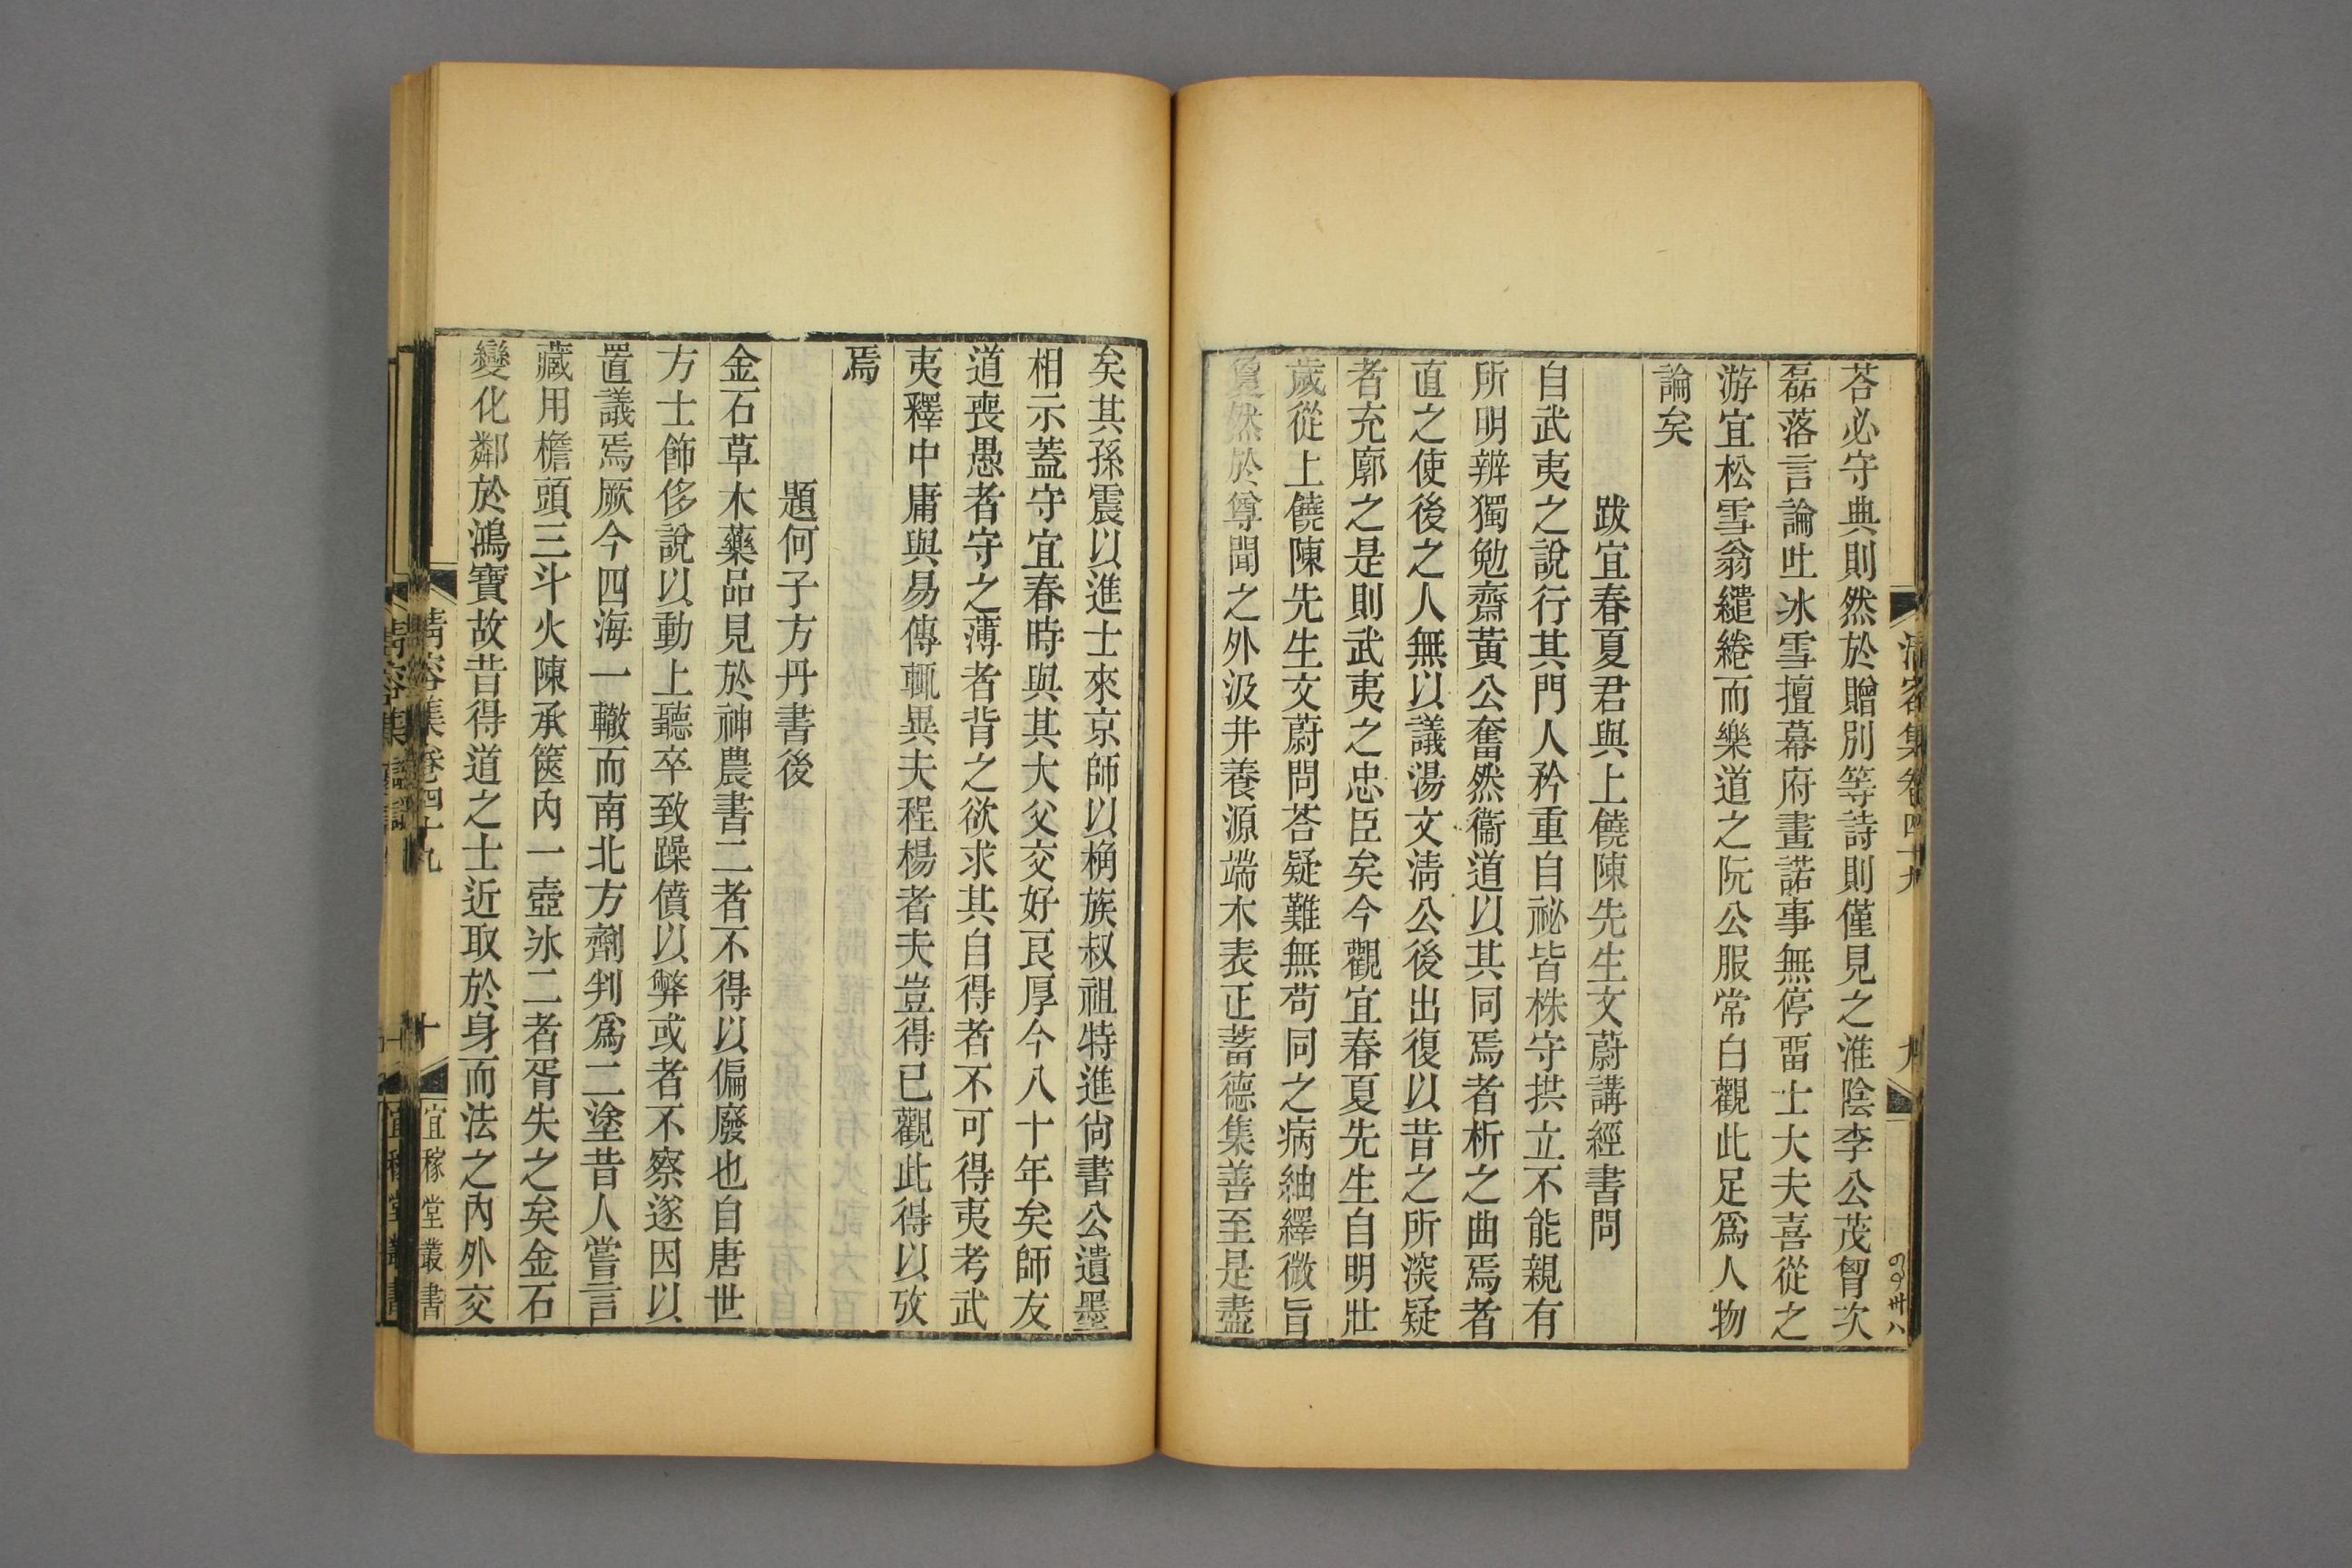 清容集卷四十九
九
荅必守典則然於贈別等詩則僅見之淮陰李公茂曾次
磊落言論吐冰雪擅幕府畫諾事無停畱士大夫喜從之
游宜松雪翁繾綣而樂道之阮公服常白觀此足爲人物
論矣
跋宜春夏君與上饒陳先生文蔚講經書問
自武夷之說行其門人矜重自祕皆株守拱立不能親有
所明辨獨勉齋黃公奮然衞道以其同焉者析之曲焉者
直之使後之人無以議湯文淸公後出復以昔之所深疑
者充廓之是則武夷之忠臣矣今觀宜春夏先生自明壯
歲從上饒陳先生文蔚問荅疑難無苟同之病紬繹微旨
敻然於尊聞之外汲井養源端木表正蓄德集善至是盡
矣其孫震以進士來京師以桷族叔祖特進尙書公遺墨
相示蓋守宜春時與其大父交好良厚今八十年矣師友
道喪愚者守之薄者背之欲求其自得者不可得夷考武
夷釋中庸與易傳輒異夫程楊者夫豈得已觀此得以攷
焉
題何子方丹書後
金石草木藥品見於神農書二者不得以偏廢也自唐世
方士飾侈說以動上聽卒致躁僨以弊或者不察遂因以
置議焉厥今四海一轍而南北方劑判爲二塗昔人嘗言
藏用檐頭三斗火陳承篋內一壺冰二者胥失之矣金石
變化鄰於鴻寶故昔得道之士近取於身而法之內外交
清容集卷四十九
十
宜稼堂叢書